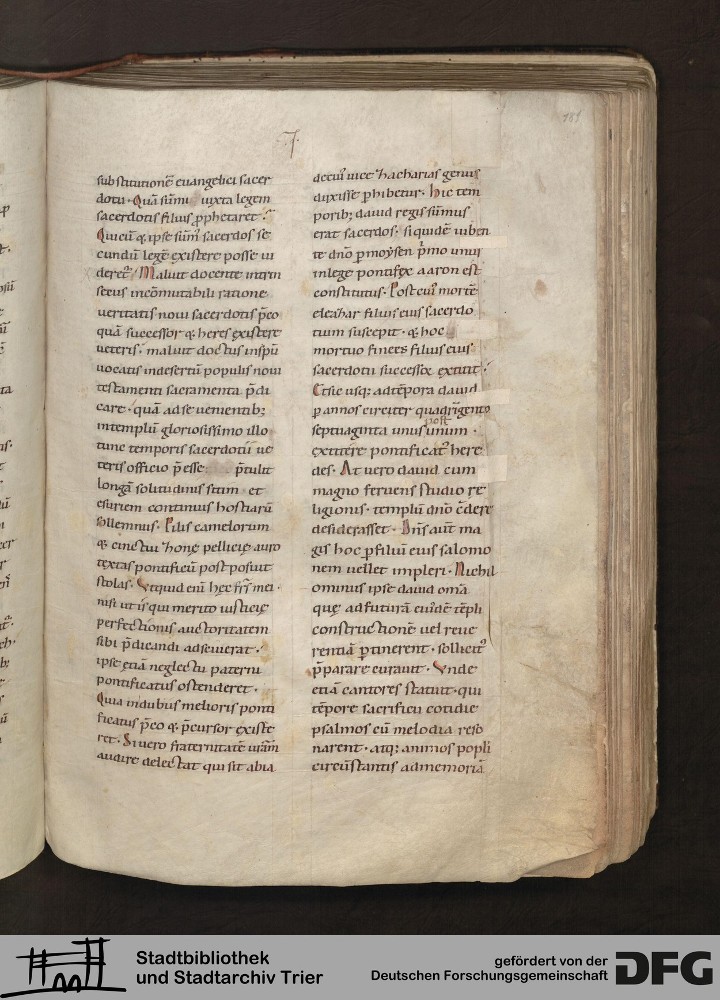 181
substitutionē euangelici sacer
dotii. Quā sūmi iuxta legem
sacerdotis filius ꝓphetaret.
Quicū & ipse sūm' sacerdos se
cundū legē existere posse ui
deret'. Maluit docente intrin
secus incōmutabili ratione
ueritatis noui sacerdotis p̄co
quā successor & heres existere
ueteris. maluit doctus inspū
uocatis indesertū populis noui
testamenti sacramenta p̄di
care. quā adse uenientib;
intemplū gloriosissimo illo
tunc temporis sacerdotii ue
teris officio p̄esse. p̄tulit
longā solitudinis sitim et
esuriem continuis hostiarū
sollemnus. Pilis camelorum
& cinctui zonę pellicię auro
textas pontificū postposuit
stolas. Vtquid enī hęc fr̄s mei.
nisi ut is qui merito iusticię
perfectionis auctoritatem
sibi p̄dicandi adsciuerat.
ipse etiā neglectu paterni
pontificatus ostenderet.
Quia indubus melioris ponti
ficatus p̄co & p̄cursor existe
ret. Si uero fraternitatē urām
audire delectat qui sit abia
decui' uice zacharias genus
duxisse ꝑhibetur. hic tem
porib; dauid regis sūmus
erat sacerdos. siquidē iuben
te dn̄o ꝑmoysen p̄mo unus
inlege pontifex aaron est
constitutus. Post cui' mortē
eleazar filius eius sacerdo
tium suscepit. & hoc
mortuo finees filius eius
sacerdotii successor extitit.
Etsic usq; adtēpora dauid
ꝑ annos circiter quadrigento
septuaginta unus post unum.
extitere pontificat' here
des. At uero dauid cum
magno feruens studio re
ligionis. templū dn̄o cōdere
desiderasset. Dn̄s aut̄ ma
gis hoc ꝑfiliū eius salomo
nem uellet impleri. Nichil
ominus ipse dauid om̄a
quę adfuturā eiusdē tēpli
constructionē uel reue
rentiā ꝑtinerent. sollicit'
p̄parare curauit. Vnde
etiā cantores statuit. qui
tēpore sacrificii cotidie
psalmos cū melodia reso
narent. atq; animos popli
circūstantis admemoriā
Stadtbibliothek
und Stadtarchiv Trier
gefördert von der
Deutschen Forschungsgemeinschaft
DFG